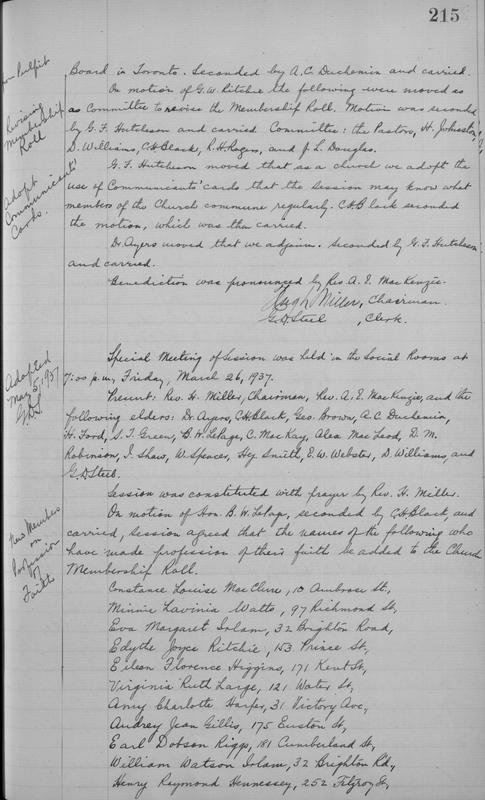 215
Board in Toronto. Seconded by A.C. Duchemin and carried.
On motion of G.W. Ritchie the following were moved as
as Committee to revise the Membership Roll. Motion was seconded
by G.F. Hutcheson and carried. Committee: the Pastors, H. Johnston,
D. Williams, C.H. Black, R.H. Rogers, and J.L. Douglas.
Revising
Membership
Roll
G.F. Hutcheson moved that as a church we adopt the
use of Communicants' cards that the Session may know what
members of the Church commune regularly. C.H. Black seconded
the motion, which was then carried.
Adopt
Communicants'
Cards.
Dr. Ayers moved that we adjourn. Seconded by G.F. Hutcheson
and carried.
Benediction was pronounced by Rev. A.E. MacKenzie.
Hugh Miller, Chairman.
G.D. Steel, Clerk.
Adopted
May 5, 1937
G.D.S.
Special Meeting of Session was held in the Social Rooms at
7:00 p.m., Friday, March 26, 1937.
Present: Rev. H. Miller, Chairman, Rev. A.E. MacKenzie, and the
following elders: Dr. Ayers, C.H. Black, Geo. Brown, A.C. Duchemin,
H. Ford, S.T. Green, B.W. LePage, C. MacKay, Alex MacLeod, D.M.
Robinson, I. Shaw, W. Spences, Hej. Smith, E.W. Webster, D. Williams, and
G.D. Steel.
Session was constituted with prayer by Rev. H. Miller.
New Members
on
Profession
of
Faith
On motion of Hon. B.W. LePage, seconded by C.H. Black, and
carried, Session agreed that the names of the following who
have made profession of their faith be added to the Church
Membership Roll.
Constance Louise MacClure, 10 Ambrose St,
Minnie Lavinia Watts, 97 Richmond St,
Eva Margaret Inlam, 32 Brighton Road,
Edythe Joyce Ritchie, 153 Prince St,
Eileen Florence Higgins, 171 Kent St,
Virginia Ruth Large, 121 Water St,
Amy Charlotte Harper, 31 Victory Ave,
Audrey Jean Gillis, 175 Euston St,
Earl Dobson Riggs, 181 Cumberland St,
William Watson Inlam, 32 Brighton Rd,
Henry Raymond Hennessey, 252 Fitzroy St,